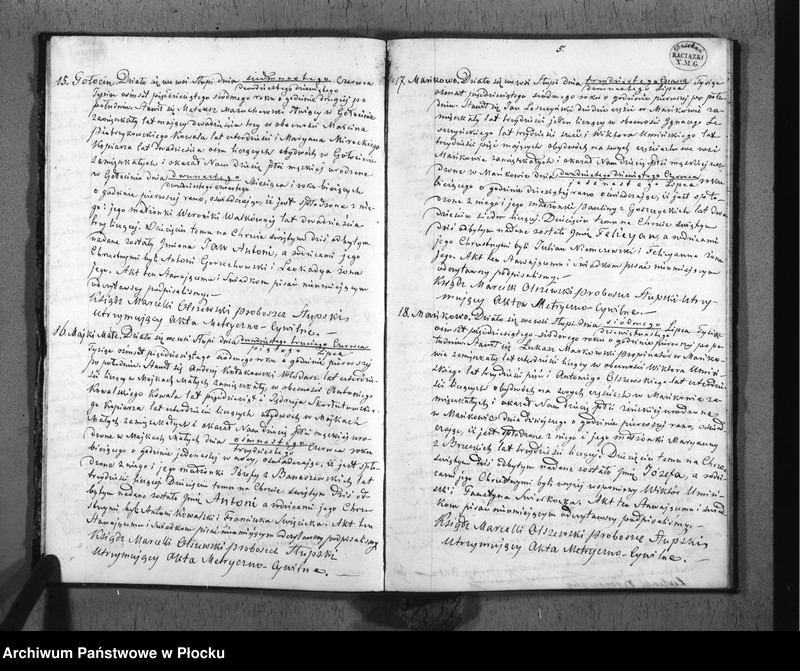 15. Gołocin. Działo się we wsi Słupi dnia siedmnastego Czerwca
dwudziestego dziewiątego
Tysiąc ośmset pięćdziesiątego siódmego roku o godzinie drugiej po
południu. Stawił się Mateusz Marcuchowski w Gołocinie
zamieszkały lat mający dwadzieścia trzy w obecności Marcina
Piotrykowskiego Kowala lat czterdzieści i Maryana Mireckiego
Kopiarza lat dwadzieścia ośm liczących obydwóch w Gołocinie
zamieszkałych i okazał Nam dziecię płci męzkiej urodzone
w Gołocinie dnia dwunastego Miesiąca i roku bieżących
dwudziestego czwartego
o godzinie pierwszej rano, oświadczając, iż jest spłodzone z nie-
go i jego małżonki Weroniki lat dwadzieścia
trzy liczącej. Dziecięciu temu na Chrzcie świętym dziś odbytym
nadane zostały Jmiona Jan Antoni, a rodzicami jego
Chrzestnymi byli Antoni Gorzechowski i Leokadya żona
jego. Akt ten Stawającemu i Świadkom pisać nieumiejącym
odczytawszy podpisaliśmy.—
Ksiądz Marcelli Olszewski Proboszcz Słupski
Utrzymujący Akta Metryczno-Cywilne.—
16. Majki Małe. Działo się we wsi Słupi dnia dwudziestego trzeciego Czerwca
piątego Lipca
Tysiąc ośmset pięćdziesiątego siódmego roku o godzinie pierwszej
po południu. Stawił się Andrzej Kołakowski Włodarz lat czterdzie-
ści liczący w Majkach Małych zamieszkały, w obecności Antoniego
Kowalskiego Kowala lat pięćdziesiąt i Jędrzeja
Kopiarza lat czterdzieści liczących obydwóch w Majkach
Małych zamieszkałych i okazał Nam dziecię płci męzkiej uro-
dzone w Majkach Małych dnia ośmnastego Czerwca roku
trzydziestego
bieżącego o godzinie jedenastej w nocy, oświadczając, iż jest spło-
dzone z niego i jego małżonki Józefy z Banaszewskich lat
trzydzieści liczącej. Dziecięciu temu na Chrzcie świętym dziś od-
bytym nadane zostało Jmię Antoni a rodzicami jego Chrze-
stnymi byli Antoni Kowalski i Franciszka Święcicka. Akt ten
Stawającemu i Świadkom pisać nieumiejącym odczytawszy podpisaliśmy
Ksiądz Marcelli Olszewski Proboszcz Słupski
Utrzymujący Akta Metryczno-Cywilne.—
5.
RACIĄŻKI
X.M.G.
17. Mańkowo. Działo się we wsi Słupi dnia trzydziestego Czerwca Tysiąc
dwunastego Lipca
ośmset pięćdziesiątego siódmego roku o godzinie pierwszej po połu-
dniu. Stawił się Jan Leszczyński dziedzic części w Mańkowie za-
mieszkały lat trzydzieści jeden liczący w obecności Ignacego Le-
szczyńskiego lat trzydzieści sześć i Wiktora Umińskiego lat
trzydzieści pięć mających obydwóch na swych częściach we wsi
Mańkowie zamieszkałych i okazał Nam dziecię płci męzkiej uro-
dzone w Mańkowie dnia dwudziestego dziewiątego Czerwca roku
jedenastego Lipca
bieżącego o godzinie dziesiątej rano oświadczając, iż jest spło-
dzone z niego i jego małżonki Pauliny z lat dwa-
dzieścia siedm liczącej. Dziecięciu temu na Chrzcie świętym
dziś odbytym nadane zostało Jmię Felicyan, a rodzicami
jego Chrzestnymi byli Julian Niemczewski i Felicyanna żona
Jego. Akt ten Stawającemu i Świadkom pisać nieumiejącym
odczytawszy podpisaliśmy.—
Ksiądz Marcelli Olszewski Proboszcz Słupski Utrzy-
mujący Aktów Metryczno-Cywilne.—
18. Mańkowo. Działo się we wsi Słupi dnia siódmego Lipca Tysiąc
dziewiętnastego
ośmset pięćdziesiątego siódmego roku o godzinie pierwszej po po-
łudniu. Stawił się Łukasz Markowski Propinator w Mańko-
wie zamieszkały lat czterdzieści liczący w obecności Wiktora Umiń-
skiego lat trzydzieści pięć i Antoniego Olszewskiego lat czterdzie-
ści liczących obydwóch na swych częściach w Mańkowie za-
mieszkałych i okazał Nam dziecię płci żeńskiej urodzone
w Mańkowie dnia dzisiejszego o godzinie pierwszej rano, oświad-
czając, iż jest spłodzone z niego i jego małżonki Maryanny
z lat trzydzieści liczącej. Dziecięciu temu na Chrzcie
świętym dziś odbytym nadane zostało Jmię Józefa, a rodzi-
cami jego Chrzestnymi byli wyżej wspomniony Wiktor Umiń-
ski i Faustyna. Akt ten Stawającemu i Świad-
kom pisać nieumiejącym odczytawszy podpisaliśmy.—
Ksiądz Marcelli Olszewski Proboszcz Słupski
Utrzymujący Akta Metryczno-Cywilne.—
Archiwum Państwowe w Płocku